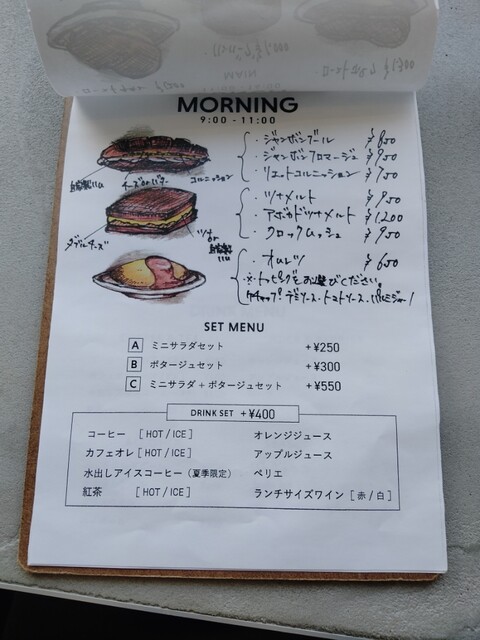 MORNING
9:00 - 11:00
・ジャンボンブール ¥850
・ジャンボンフロマージュ ¥950
・リエットコルニッション ¥750
チーズorバター
コルニッション
・ツナメルト ¥950
・アボカドツナメルト ¥1,200
・クロックムッシュ ¥950
ダブルチーズ
ツナ
or
・オムレツ ¥600
※トッピングをお選びください。
ケチャップ・デミソース・トマトソース・
SET MENU
A ミニサラダセット +¥250
B ポタージュセット +¥300
C ミニサラダ + ポタージュセット +¥550
DRINK SET +¥400
コーヒー [ HOT / ICE ] オレンジジュース
カフェオレ [ HOT / ICE ] アップルジュース
水出しアイスコーヒー (夏季限定) ペリエ
紅茶 [ HOT / ICE ] ランチサイズワイン [ 赤 / 白 ]